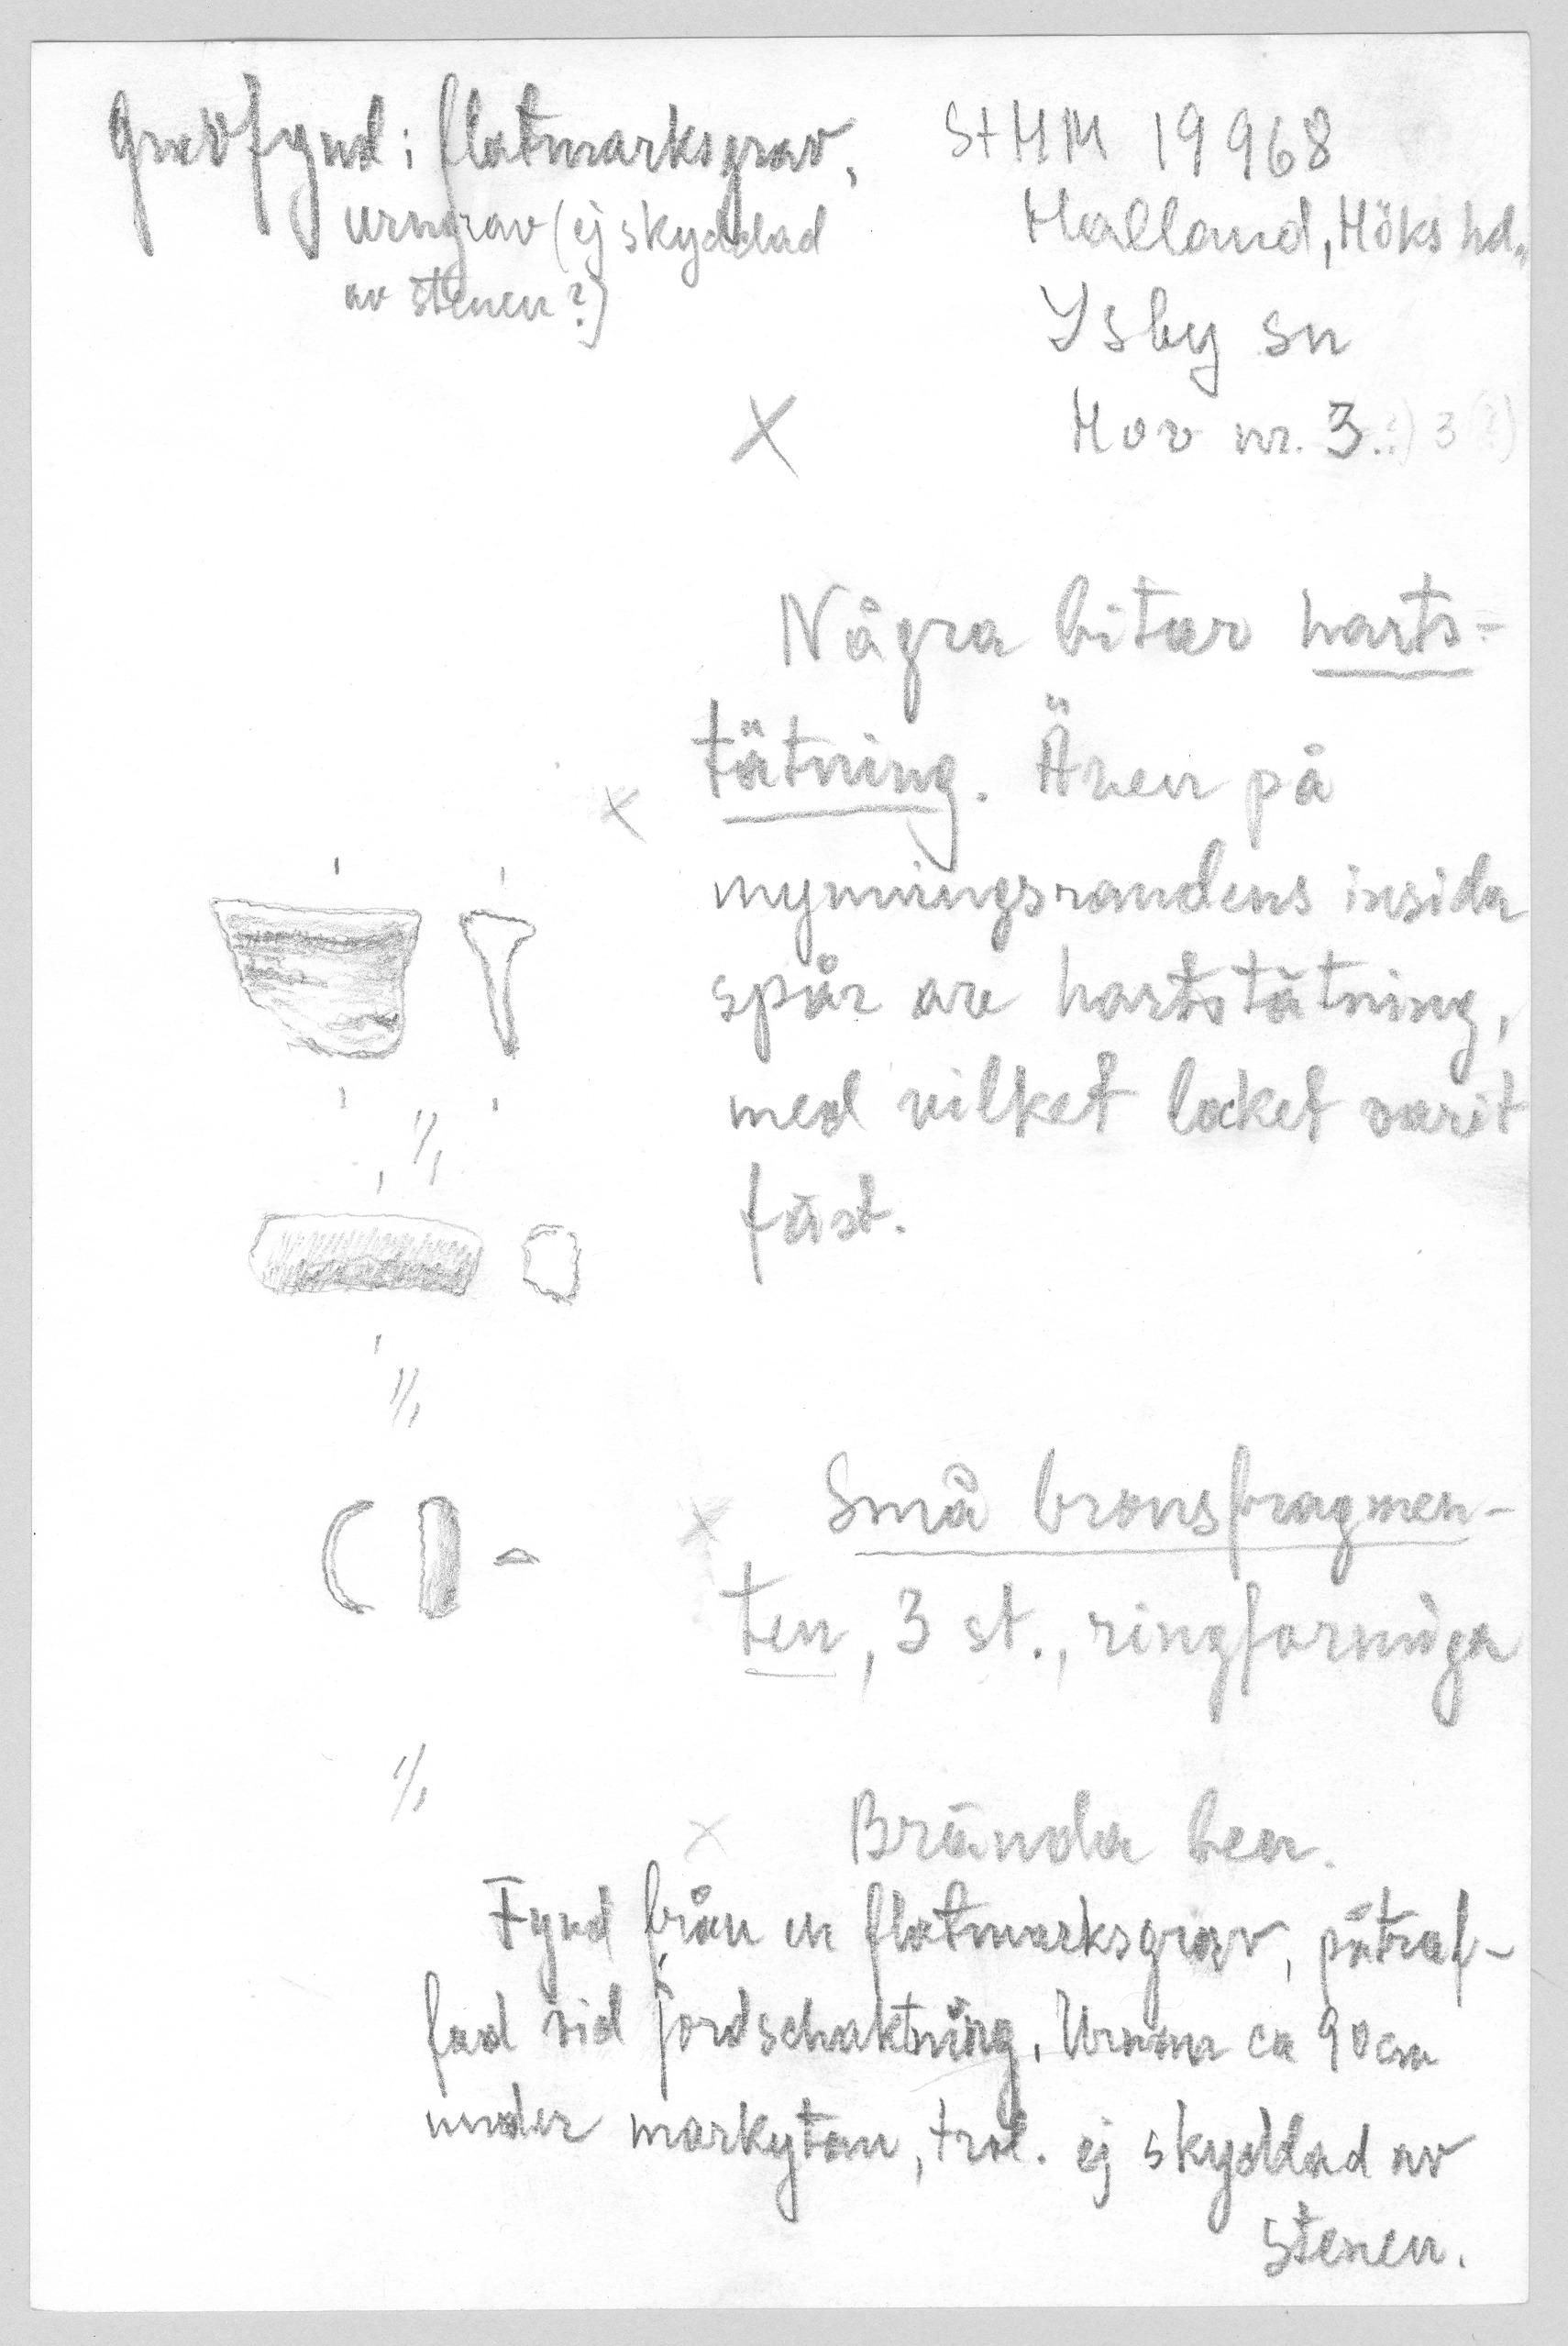 Gravfynd: flatmarksgrav,
urngrav (ej skyddad
av stenen?)
StHM 19968
Halland, Höks hd.,
Ysby sn
Hov nr. 3. 3 (?)
Några bitar harts-
tätning. Även på
mynningsrandens insida
spår av hartstätning,
med vilket locket varit
fäst.
1/1
1/1
Små bronsfragmen-
ten, 3 st., ringformiga
1/1
Brända ben.
Fynd från en flatmarksgrav, påträf-
fad vid jordschaktning. Urnan ca 90 cm
under markytan, trol. ej skyddad av
stenen.